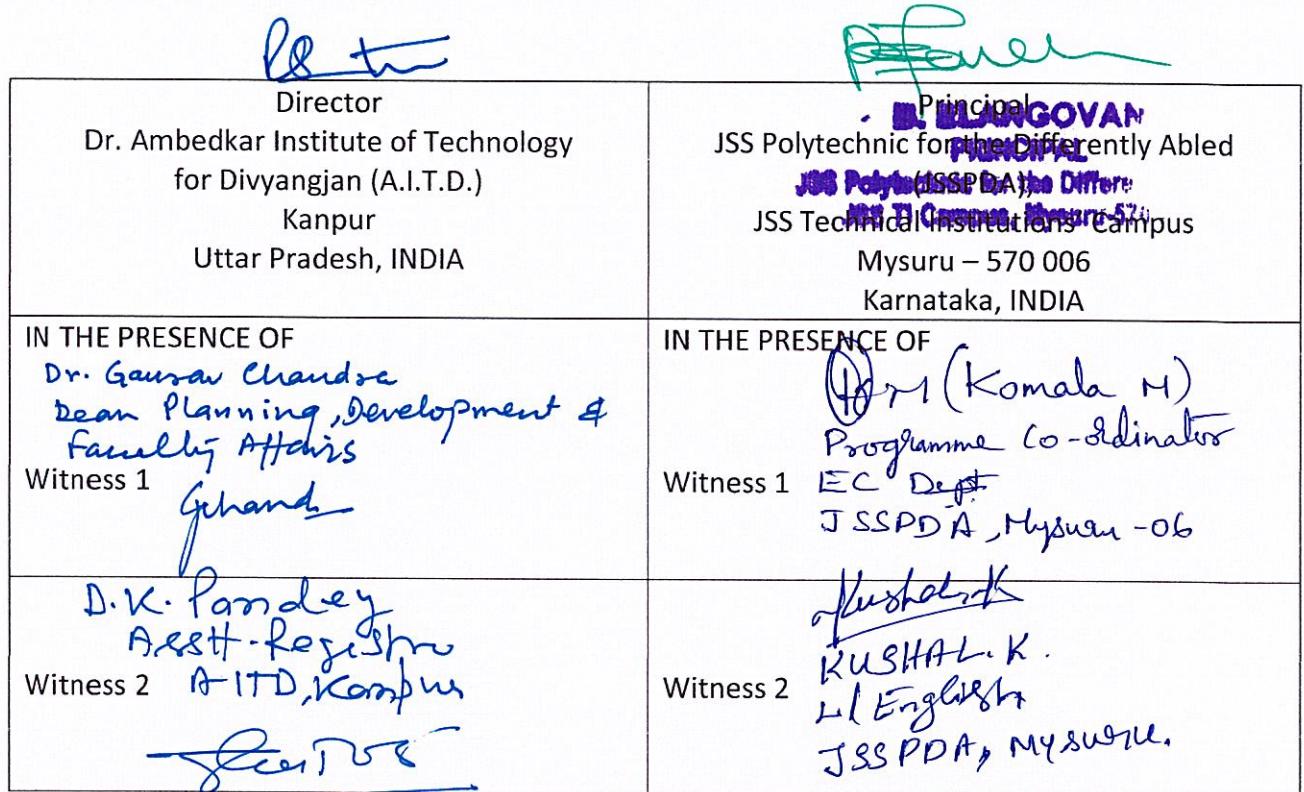 Director
Dr. Ambedkar Institute of Technology
for Divyangjan (A.I.T.D.)
Kanpur
Uttar Pradesh, INDIA
Principal
JSS Polytechnic for the Differently Abled
(JSSPDA),
JSS Technical Institutions Campus
Mysuru – 570 006
Karnataka, INDIA
GOVAN
PRINCIPAL
JSS the Differe
JSS TI Campus, Mysuru-57
IN THE PRESENCE OF
Dr. Gaurav Chandra
Dean Planning, Development &
Faculty Affairs
Witness 1
IN THE PRESENCE OF
(Komala M)
Programme Co-ordinator
Witness 1 EC Dept
JSSPDA, Mysuru -06
D.K. Pandey
Asstt. Registrar
Witness 2 AITD, Kanpur
Kushal.K
KUSHAL.K.
Witness 2 L/ English
JSSPDA, Mysuru.